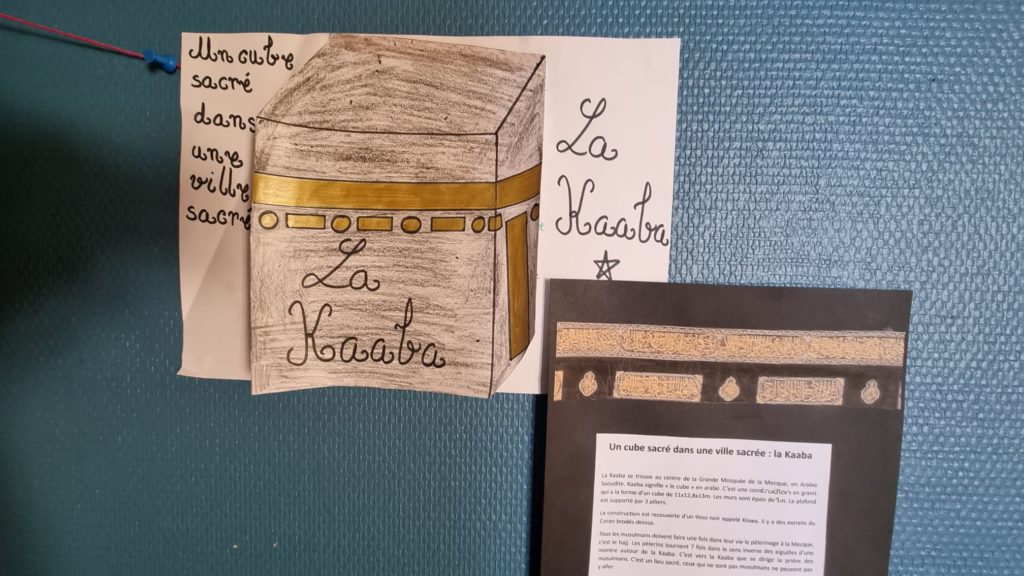 Un cube
sacré
dans
une
ville
sacré
La
Kaaba
La
Kaaba
Un cube sacré dans une ville sacrée : la Kaaba
La Kaaba se trouve au centre de la Grande Mosquée de la Mecque, en Arabie
Saoudite. Kaaba signifie « le cube » en arabe. C'est une construction en granit
qui a la forme d'un cube de 11x12,8x13m. Les murs sont épais de 1m. Le plafond
est supporté par 3 piliers.
La construction est recouverte d'un tissu noir appelé Kiswa. Il y a des extraits du
Coran brodés dessus.
Tous les musulmans doivent faire une fois dans leur vie le pèlerinage à la Mecque,
c'est le hajj. Les pèlerins tournent 7 fois dans le sens inverse des aiguilles d'une
montre autour de la Kaaba. C'est vers la Kaaba que se dirige la prière des
musulmans. C'est un lieu sacré, ceux qui ne sont pas musulmans ne peuvent pas
y aller.